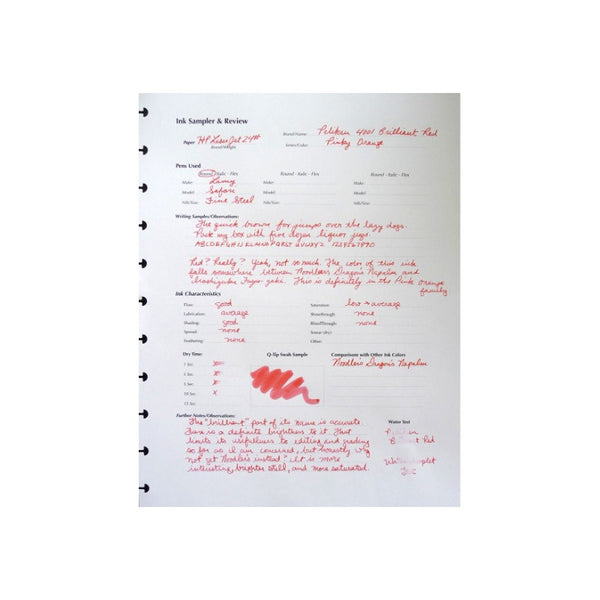 Ink Sampler & Review
Paper HP LaserJet 24# Brand Name: Pelikan 4001 Brilliant Red
Brand/Weight Series/Color: Pinky Orange
Pens Used
Round - Italic - Flex Round - Italic - Flex Round - Italic - Flex
Make: Lamy Make: Make:
Model: Safari Model: Model:
Nib/Size: Fine Steel Nib/Size: Nib/Size:
Writing Samples/Observations:
The quick brown fox jumps over the lazy dogs.
Pack my box with five dozen liquor jugs.
ABCDEFGHIJKLMNOPQRSTUVWXYZ 1234567890
Red? Really? Yeah, not so much. The color of this ink
falls somewhere between Noodlers Dragon's Napalm and
Iroshizuku Fuyu-gaki. This is definitely in the Pink orange
family
Ink Characteristics
Flow: good Saturation: low → average
Lubrication: average Showthrough: none
Shading: good Bleedthrough: none
Spread: none Smear (dry):
Feathering: none Other:
Dry Time: Q-Tip Swab Sample Comparison with Other Ink Colors
1 Sec. Noodler's Dragon's Napalm
3 Sec. x
5 Sec. x
10 Sec. x
15 Sec.
Further Notes/Observations: Water Test
The "brilliant" part of its name is accurate.
There is a definite brightness to it. That
limits its usefulness to editing and grading
so far as I am concerned, but honestly why
not get Noodlers instead? It is more
interesting, brighter still, and more saturated.
Pelikan
Brilliant Red